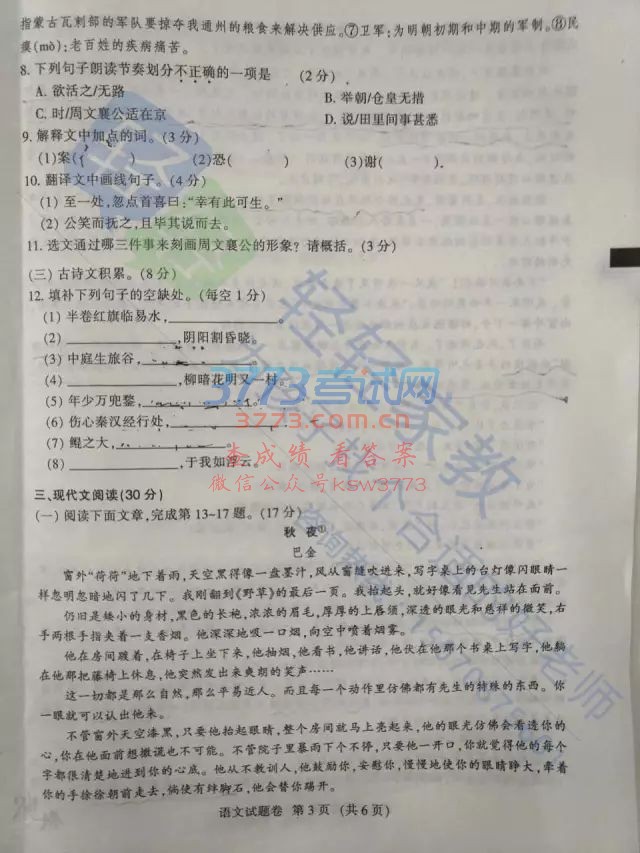 指蒙古瓦剌部的军队要掠夺我通州的粮食来解决供应。⑦卫军;为明朝初期和中期的军制。⑧民
瘼(mò);老百姓的疾病痛苦。
8. 下列句子朗读节奏划分不正确的一项是 (2分)
A. 欲活之/无路
B. 举朝/仓皇无措
C. 时/周文襄公适在京
D. 说/田里间事甚悉
9. 解释文中加点的词。(3分)
(1)案( ) (2)恐( ) (3)谢( )
10. 翻译文中画线句子。(4分)
(1) 至一处,忽点首喜曰:“幸有此可生。”
(2) 公笑而抚之,且毕其说而去。
11. 选文通过哪三件事来刻画周文襄公的形象? 请概括。(3分)
(三) 古诗文积累。(8分)
12. 填补下列句子的空缺处。(每空1分)
(1) 半卷红旗临易水,____________。
(2) ____________,阴阳割昏晓。
(3) 中庭生旅谷,____________。
(4) ____________,柳暗花明又一村。
(5) 年少万兜鍪,____________。
(6) 伤心秦汉经行处,____________。
(7) 鲲之大,____________。
(8) ____________,于我如浮云。
三、现代文阅读(30分)
(一) 阅读下面文章,完成第13~17题。(17分)
秋 夜①
巴金
窗外“荷荷”地下着雨,天空黑得像一盘墨汁,风从窗缝吹进来,写字桌上的台灯像闪眼睛一
样忽明忽暗地闪了几下。我刚翻到《野草》的最后一页。我抬起头,就好像看见先生站在面前。
仍旧是矮小的身材,黑色的长袍,浓浓的眉毛,厚厚的上唇须,深透的眼光和慈祥的微笑,右
手两根手指夹着一支香烟。他深深地吸一口烟,向空中喷着烟雾。
他在房间踱着,在椅子上坐下来,他抽烟,他看书,他讲话,他伏在他那个书桌上写字,他躺
在他那把藤椅上休息,他突然发出来爽朗的笑声……
这一切都是那么自然,那么平易近人。而且每一个动作里仿佛都有先生的特殊的东西。你
一眼就可以认出他来。
不管窗外天空漆黑,只要他抬起眼睛,整个房间就马上亮起来,他的眼光仿佛会看透你的
心,你在他面前想撒谎也不可能。不管院子里暴雨下个不停,只要他一开口,你就觉得他的每个
字都很清楚地进到你的心底。他从不教训人,他鼓励你,安慰你,慢慢地使你的眼睛睁大,牵着
你的手徐徐朝前走去,倘使有绊脚石,他会替你踢开。
语文试题卷 第3页 (共6页)
3773考试网
3773.com.cn
查成绩 看答案
微信公众号ksw3773
轻轻家教